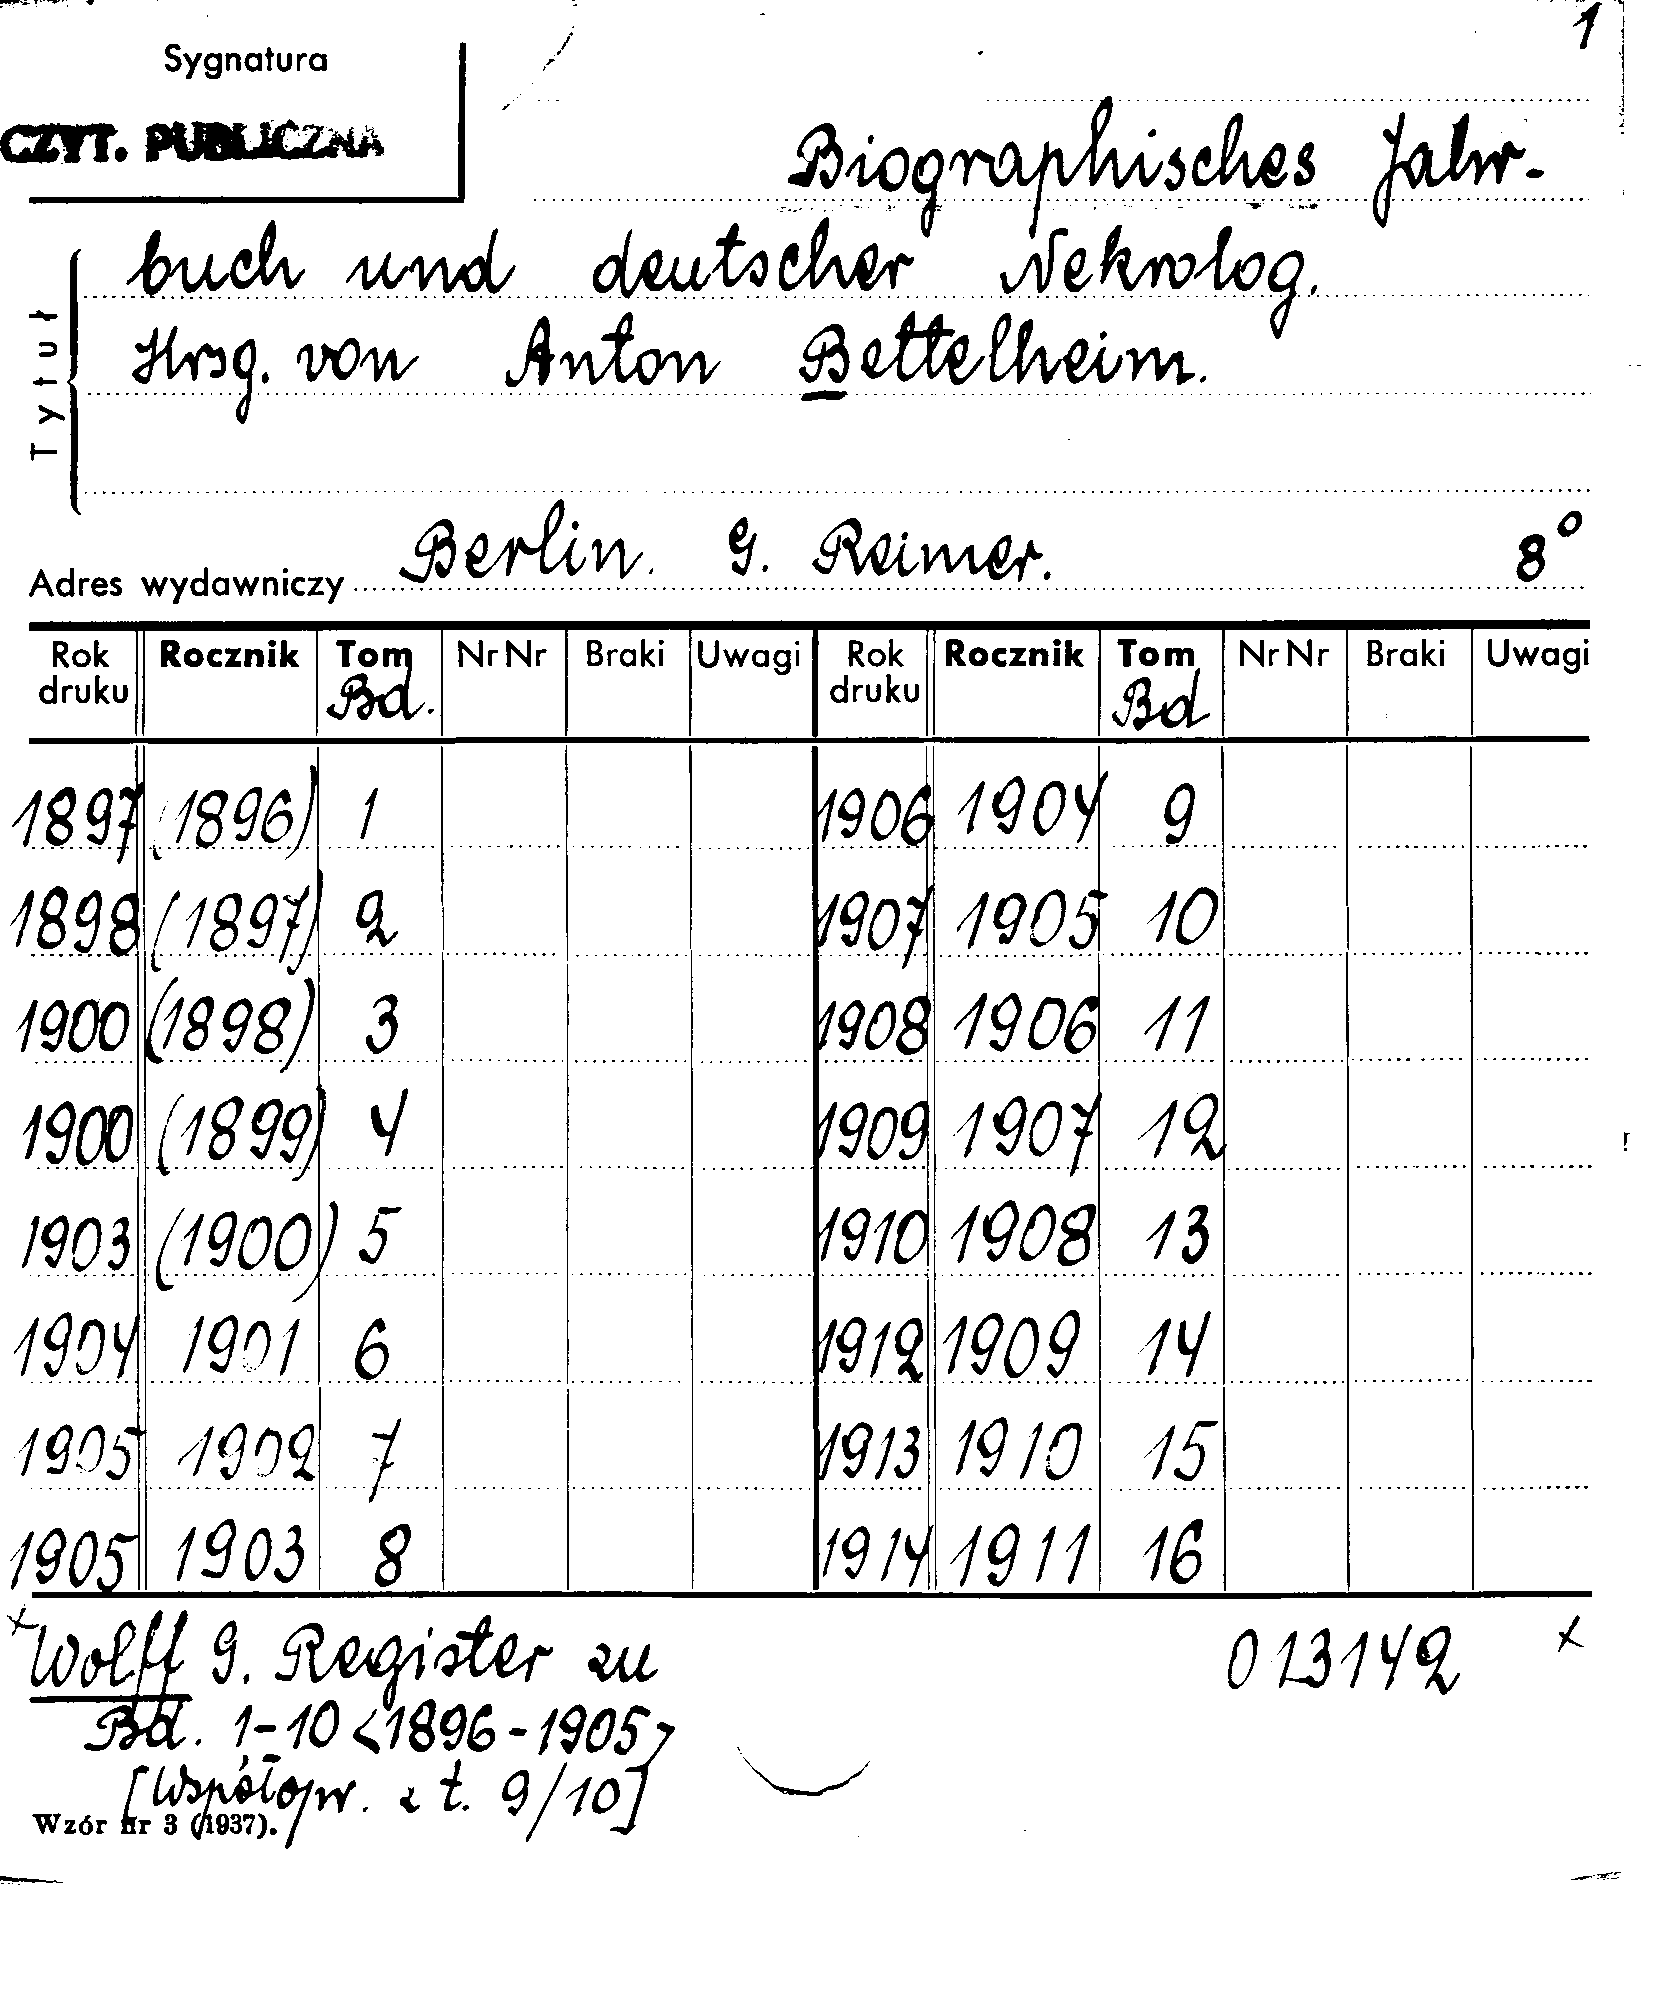 1
Sygnatura
CZYT. PUBLICZNA
Biographisches Jahr-
buch und deutscher Nekrolog.
Hrsg. von Anton Bettelheim.
Tytuł
Adres wydawniczy Berlin. G. Reimer. 8°
Rok druku Rocznik Tom Bd. Nr Nr Braki Uwagi Rok druku Rocznik Tom Bd Nr Nr Braki Uwagi
1897 (1896) 1 1906 1904 9
1898 (1897) 2 1907 1905 10
1900 (1898) 3 1908 1906 11
1900 (1899) 4 1909 1907 12
1903 (1900) 5 1910 1908 13
1904 1901 6 1912 1909 14
1905 1902 7 1913 1910 15
1905 1903 8 1914 1911 16
x Wolff G. Register zu 013142 x
Bd. 1-10 <1896-1905>
[Współopr. z t. 9/10]
Wzór nr 3 (1937).